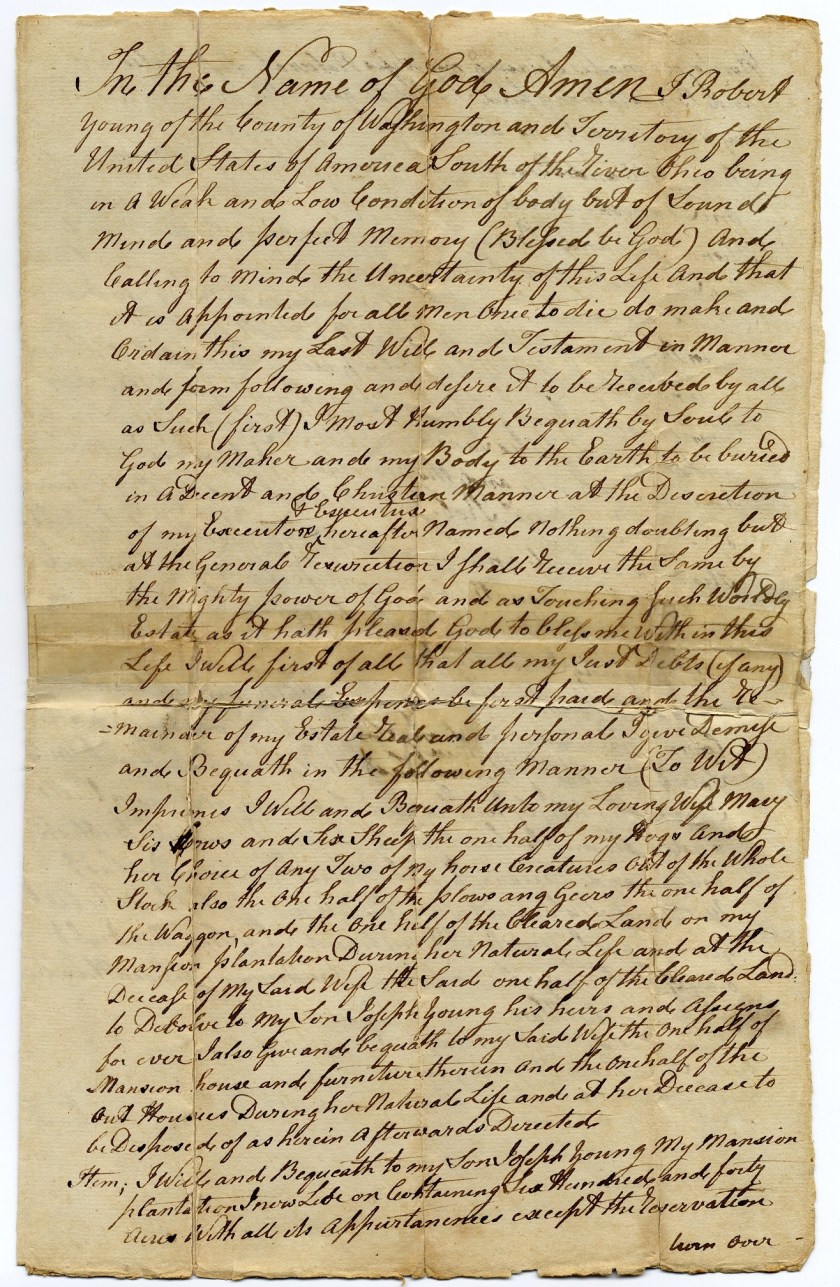 In the Name of God Amen I Robert
Young of the County of Washington and Territory of the
United States of America South of the River Ohio being
in A Weak and Low Condition of body but of Sound
Mind and perfect Memory (Blessed be God) And
Calling to Mind the Uncertainty of this Life And that
it is Appointed for all Men Once to die do make and
Ordain this my Last Will and Testament in Manner
and form following and desire it to be Received by all
as Such (first) I Most Humbly Bequath by Soul to
God my Maker and my Body to the Earth to be buried
in A Decent and Christian Manner at the Discretion
& Executrix
of my Executors hereafter Named Nothing doubting but
at the General Resurection I shall Receive the Same by
the Mighty power of God and as Touching Such Worldly
Estate as it hath pleased God to bless me With in this
Life I Will first of all that all my Just Debts (if any)
and my funeral Expences be first paid and the Re-
=mainder of my Estate Real and personal I give Demise
and Bequath in the following Manner (To Wit)
Imprimis I Will and Bequath Unto my Loving Wife Mary
Six Cows and Six Sheep the one half of my Hogs And
her Choice of Any Two of my horse Creatures Out of the Whole
Stock also the One half of the plows and Geers the one half of
the Waggon and the One half of the Cleared Land on my
Mansion plantation During her Natural Life and at the
Decease of My Said Wife the Said one half of the Cleared Land
to Devolve to My Son Joseph Young his heirs and Assigns
for ever I also Give and bequath to my Said Wife the One half of
Mansion house and furniture therein And the One half of the
Out Houses During her Natural Life and at her Decease to
be Disposed of as herein Afterwards Directed
Item; I Will and Bequeath to my Son Joseph Young My Mansion
plantation I now Live on Containing Six Hundred and forty
Acres With all its Appurtanences except the Reservation
turn Over -